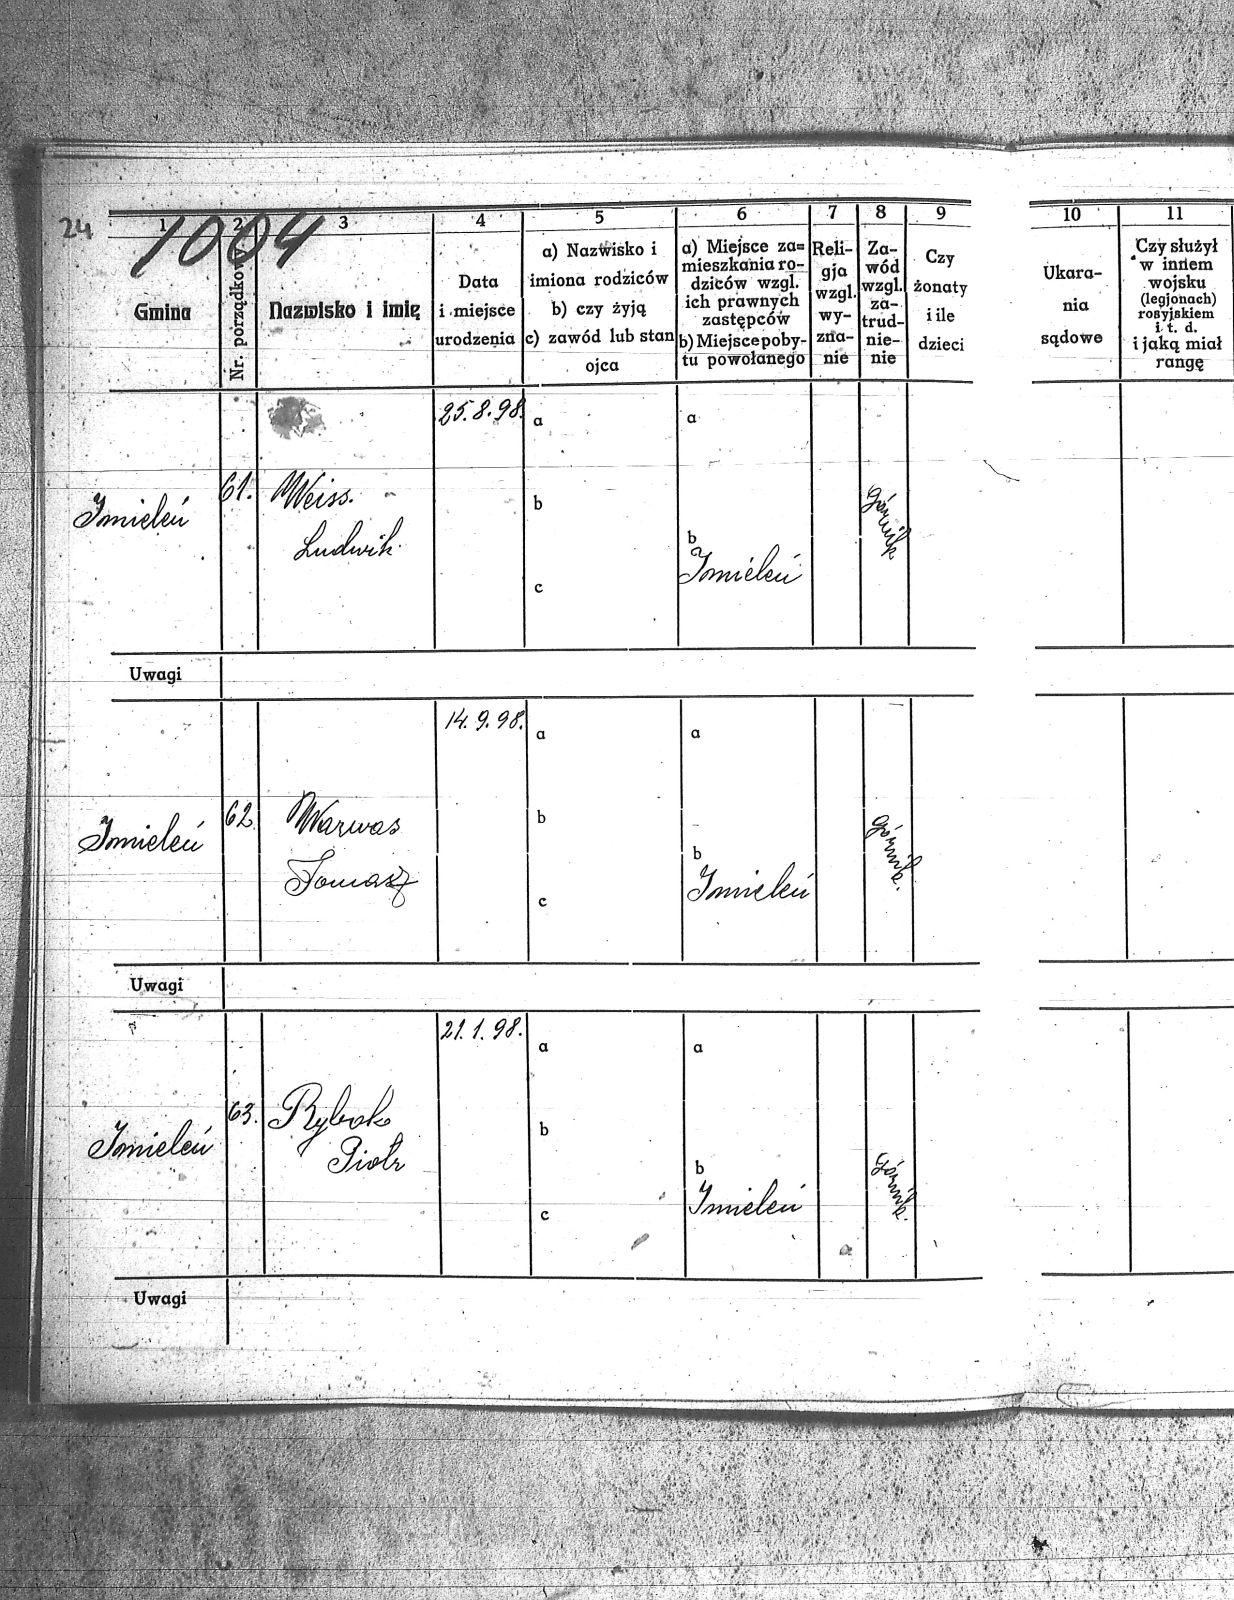 24
1004
1 2 3 4 5 6 7 8 9 10 11
Gmina
Nr. porządkowy
Nazwisko i imię
Data
i miejsce
urodzenia
a) Nazwisko i
imiona rodziców
b) czy żyją
c) zawód lub stan
ojca
a) Miejsce za=
mieszkania ro-
dziców wzgl.
ich prawnych
zastępców
b) Miejsce poby-
tu powołanego
Reli-
gja
wzgl.
wy-
zna-
nie
Za-
wód
wzgl.
za-
trud-
nie-
nie
Czy
żonaty
i ile
dzieci
Ukara-
nia
sądowe
Czy służył
w innem
wojsku
(legjonach)
rosyjskiem
i t. d.
i jaką miał
rangę
Imieleń
61.
Weiss.
Ludwik.
25.8.98.
a
b
c
a
b
Imieleń
Górnik
Uwagi
Imieleń
62.
Warwas
Tomasz
14.9.98.
a
b
c
a
b
Imieleń
Górnik.
Uwagi
Imieleń
63.
Rybok
Piotr
21.1.98.
a
b
c
a
b
Imieleń
Górnik.
Uwagi